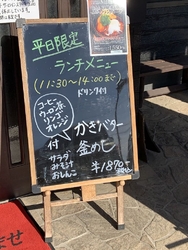 平日限定
ランチメニュー
11:30～14:00まで
ドリンク付
コーヒー
ウーロン茶
リンゴ
オレンジ
付
サラダ
みそ汁
おしんこ
かきバター
釜めし
¥1870
せ